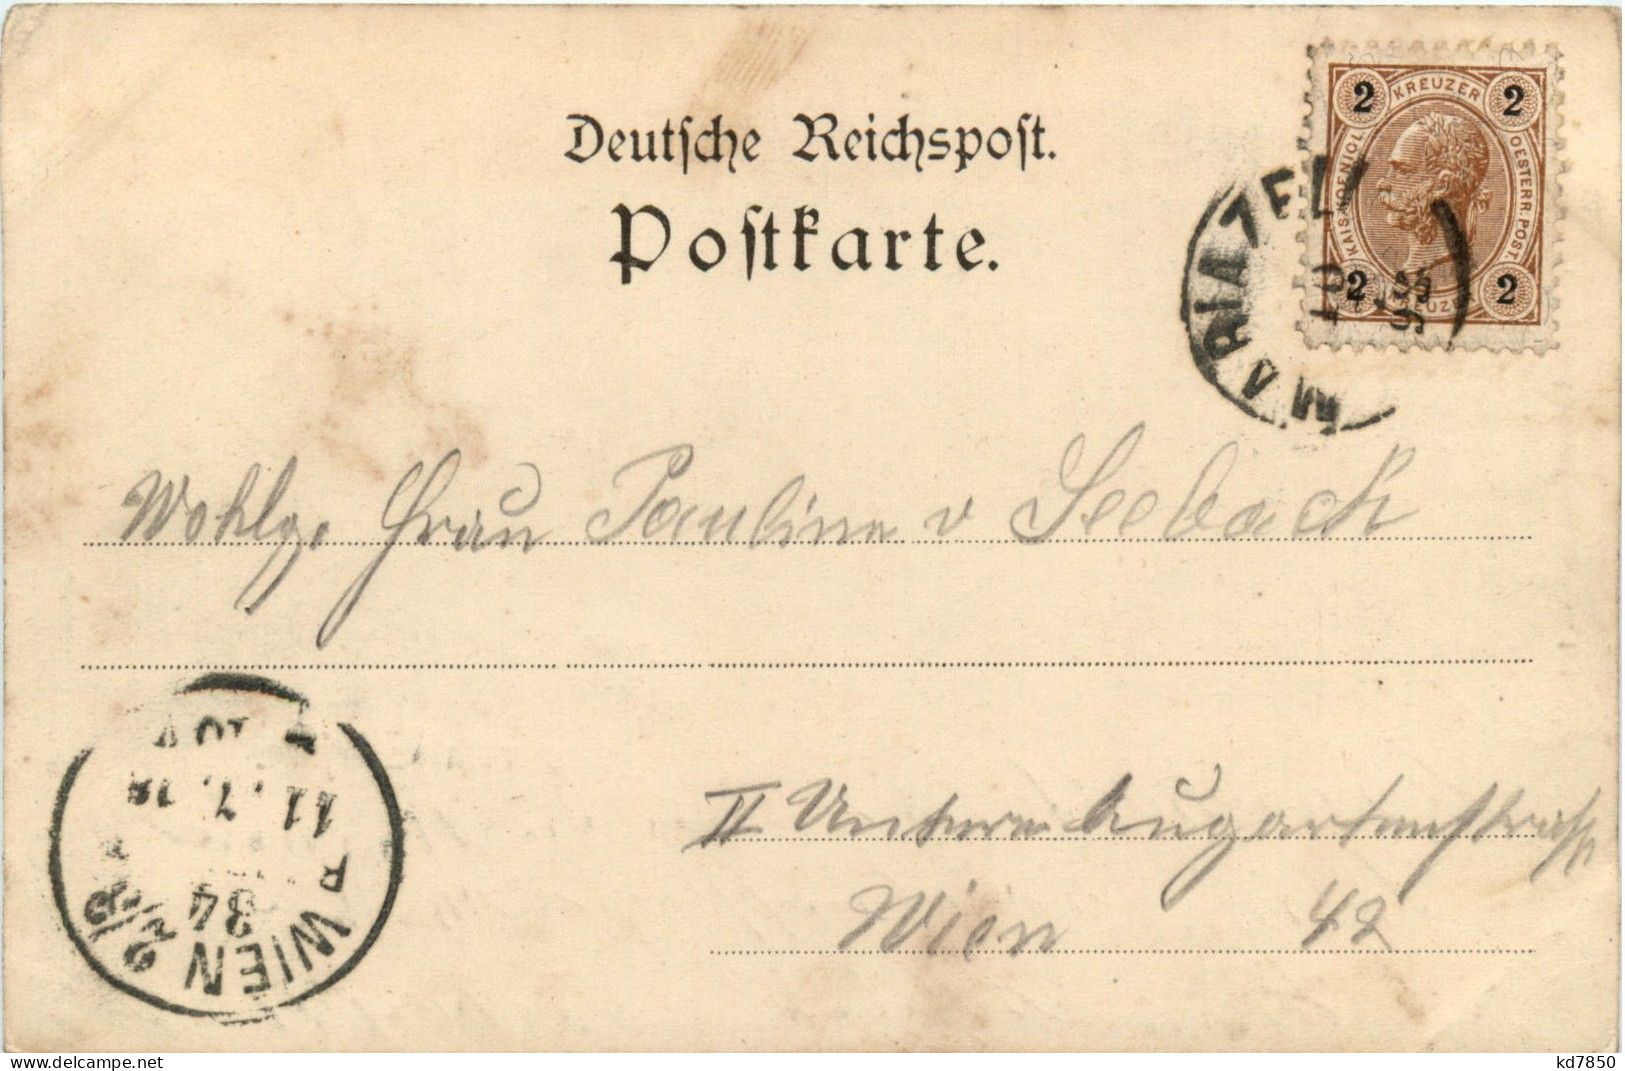 Deutsche Reichspost.
Postkarte.
2 KREUZER 2
KAIS. KOENIGL. OESTERR. POST.
2 KREUZER 2
MARIAZELL
10
Wohlg. Frau Pauline v Seebach
II Untere Augartenstrasse
Wien 42
WIEN 2/3
34
11. 7.
www.delcampe.net
kd7850